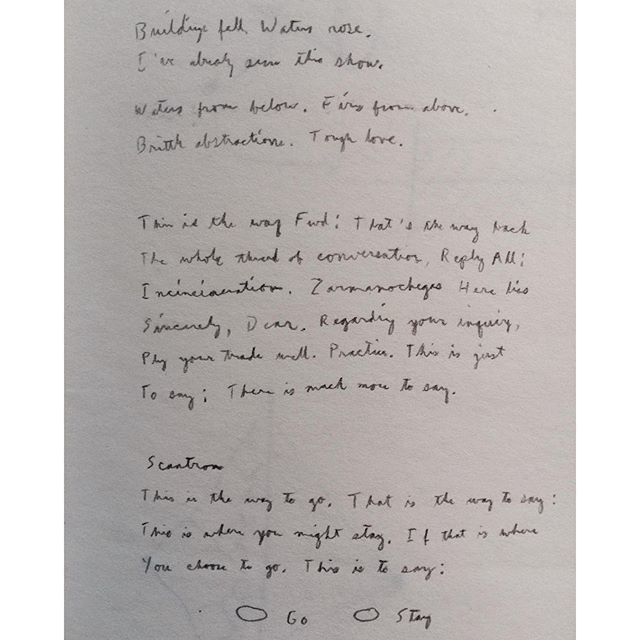 Buildings fell. Waters rose.
I've already seen this show.
Waters from below. Fires from above.
Brittle abstractions. Tough love.
This is the way Fwd: That's the way back
The whole thread of conversation, Reply All:
Incineration. Zarmanocheges Here lies
Sincerely, Dear. Regarding your inquiry,
Ply your trade well. Practice. This is just
To say; There is much more to say.
Scantron
This is the way to go. That is the way to say:
This is where you might stay. If that is where
You choose to go. This is to say:
Go Stay